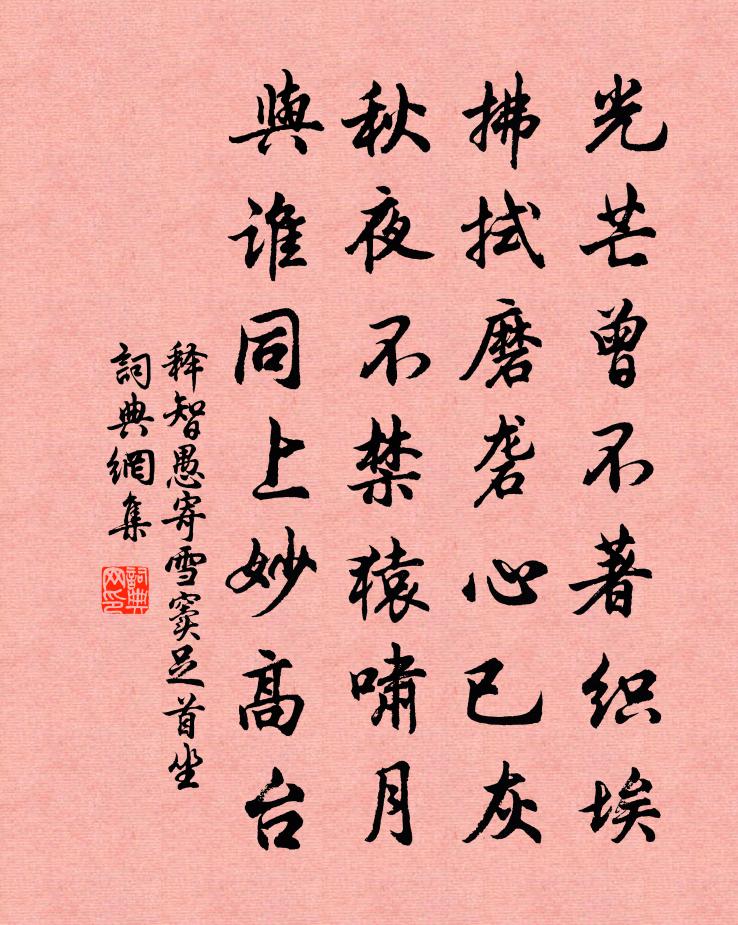 光芒曾不著织埃
拂拭磨砻心已灰
秋夜不禁猿啸月
與谁同上妙高台
释智愚寄雪窦足首坐
詞典網集
詞典網印